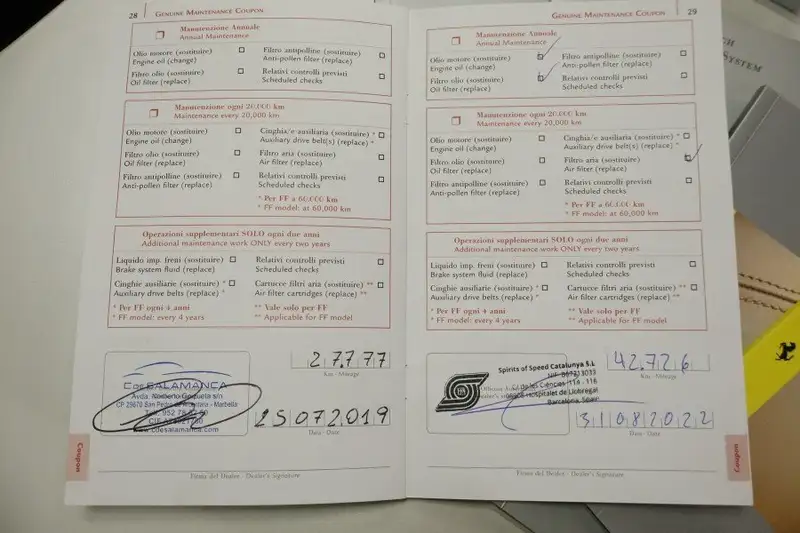 28 GENUINE MAINTENANCE COUPON
Manutenzione Annuale
Annual Maintenance
Olio motore (sostituire)
Engine oil (change)
Filtro antipolline (sostituire)
Anti-pollen filter (replace)
Filtro olio (sostituire)
Oil filter (replace)
Relativi controlli previsti
Scheduled checks
Manutenzione ogni 20.000 km
Maintenance every 20,000 km
Olio motore (sostituire)
Engine oil (change)
Cinghia/e auxiliaria (sostituire) *
Auxiliary drive belt(s) (replace) *
Filtro olio (sostituire)
Oil filter (replace)
Filtro aria (sostituire)
Air filter (replace)
Filtro antipolline (sostituire)
Anti-pollen filter (replace)
Relativi controlli previsti
Scheduled checks
* Per FF a 60.000 km
* FF model: at 60,000 km
Operazioni supplementari SOLO ogni due anni
Additional maintenance work ONLY every two years
Liquido imp. freni (sostituire)
Brake system fluid (replace)
Relativi controlli previsti
Scheduled checks
Cinghie ausiliarie (sostituire) *
Auxiliary drive belts (replace) *
Cartucce filtri aria (sostituire) **
Air filter cartridges (replace) **
* Per FF ogni 4 anni
* FF model: every 4 years
** Vale solo per FF
** Applicable for FF model
CdeSALAMANCA
Avda. Norberto Goizueta s/n
CP 29670 San Pedro de Alcántara - Marbella
www.cdesalamanca.com
27.777
Km - Mileage
25072019
Data - Date
Firma del Dealer - Dealer's Signature
Coupon
GENUINE MAINTENANCE COUPON 29
Manutenzione Annuale
Annual Maintenance
Olio motore (sostituire)
Engine oil (change)
Filtro antipolline (sostituire)
Anti-pollen filter (replace)
Filtro olio (sostituire)
Oil filter (replace)
Relativi controlli previsti
Scheduled checks
Manutenzione ogni 20.000 km
Maintenance every 20,000 km
Olio motore (sostituire)
Engine oil (change)
Cinghia/e auxiliaria (sostituire) *
Auxiliary drive belt(s) (replace) *
Filtro olio (sostituire)
Oil filter (replace)
Filtro aria (sostituire)
Air filter (replace)
Filtro antipolline (sostituire)
Anti-pollen filter (replace)
Relativi controlli previsti
Scheduled checks
* Per FF a 60.000 km
* FF model: at 60,000 km
Operazioni supplementari SOLO ogni due anni
Additional maintenance work ONLY every two years
Liquido imp. freni (sostituire)
Brake system fluid (replace)
Relativi controlli previsti
Scheduled checks
Cinghie ausiliarie (sostituire) *
Auxiliary drive belts (replace) *
Cartucce filtri aria (sostituire) **
Air filter cartridges (replace) **
* Per FF ogni 4 anni
* FF model: every 4 years
** Vale solo per FF
** Applicable for FF model
Spirits of Speed Catalunya S.L
C/ de les Ciències 116 - 118
Hospitalet de Llobregat
Barcelona, Spain
42.726
Km - Mileage
31082022
Data - Date
Firma del Dealer - Dealer's Signature
Coupon
SYSTEM